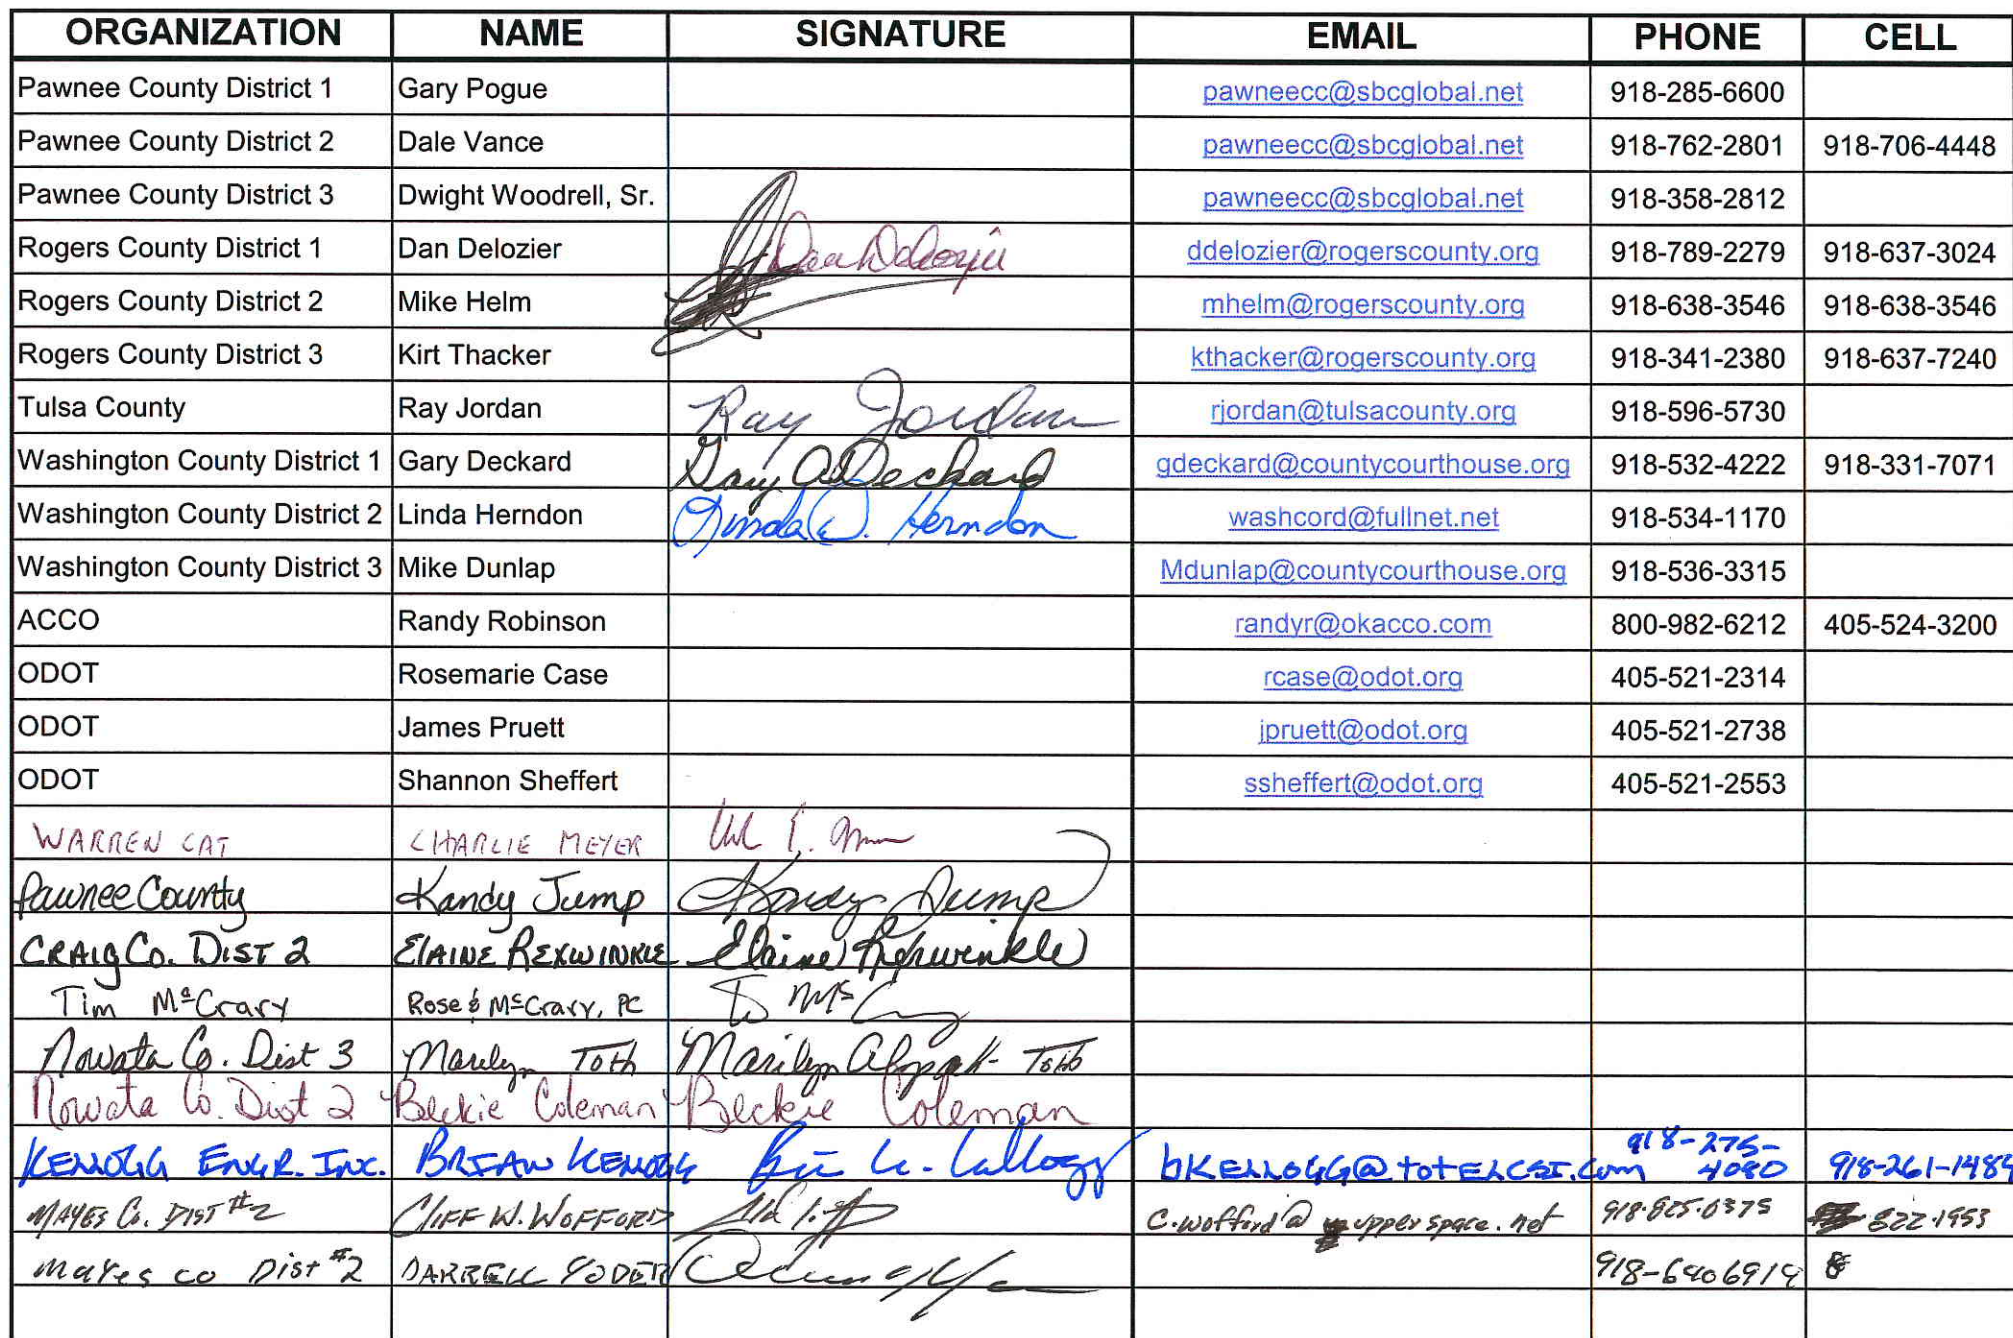 ORGANIZATION NAME SIGNATURE EMAIL PHONE CELL
Pawnee County District 1 Gary Pogue pawneecc@sbcglobal.net 918-285-6600
Pawnee County District 2 Dale Vance pawneecc@sbcglobal.net 918-762-2801 918-706-4448
Pawnee County District 3 Dwight Woodrell, Sr. pawneecc@sbcglobal.net 918-358-2812
Rogers County District 1 Dan Delozier Dan Delozier ddelozier@rogerscounty.org 918-789-2279 918-637-3024
Rogers County District 2 Mike Helm mhelm@rogerscounty.org 918-638-3546 918-638-3546
Rogers County District 3 Kirt Thacker kthacker@rogerscounty.org 918-341-2380 918-637-7240
Tulsa County Ray Jordan Ray Jordan rjordan@tulsacounty.org 918-596-5730
Washington County District 1 Gary Deckard Gary A Deckard gdeckard@countycourthouse.org 918-532-4222 918-331-7071
Washington County District 2 Linda Herndon Linda D. Herndon washcord@fullnet.net 918-534-1170
Washington County District 3 Mike Dunlap Mdunlap@countycourthouse.org 918-536-3315
ACCO Randy Robinson randyr@okacco.com 800-982-6212 405-524-3200
ODOT Rosemarie Case rcase@odot.org 405-521-2314
ODOT James Pruett jpruett@odot.org 405-521-2738
ODOT Shannon Sheffert ssheffert@odot.org 405-521-2553
WARREN CAT CHARLIE MEYER
Pawnee County Kandy Jump Kandy Jump
CRAIG Co. DIST 2 ELAINE REXWINKLE Elaine Rexwinkle
Tim McCrary Rose & McCrary, PC
Nowata Co. Dist 3 Marilyn Toth Marilyn Toth
Nowata Co. Dist 2 Beckie Coleman Beckie Coleman
KELLOGG ENGR. INC. BRIAN KELLOGG Kellogg bKELLOGG@totELCSI.com 918-275-4080 918-261-1484
MAYES Co. DIST #2 CLIFF W. WOFFORD c.wofford@upperspace.net 918-825-0375 822-1953
Mayes co Dist #2 DARRELL YODER 918-6406914